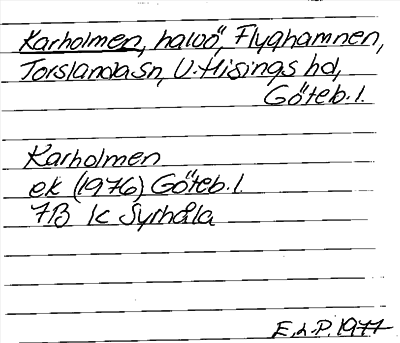 Karholmen, halvö, Flyghamnen,
Torslanda sn, V. Hisings hd,
Göteb. l.
Karholmen
ek (1976) Göteb. l.
7B 1c Syrhåla
E.L.P. 1977